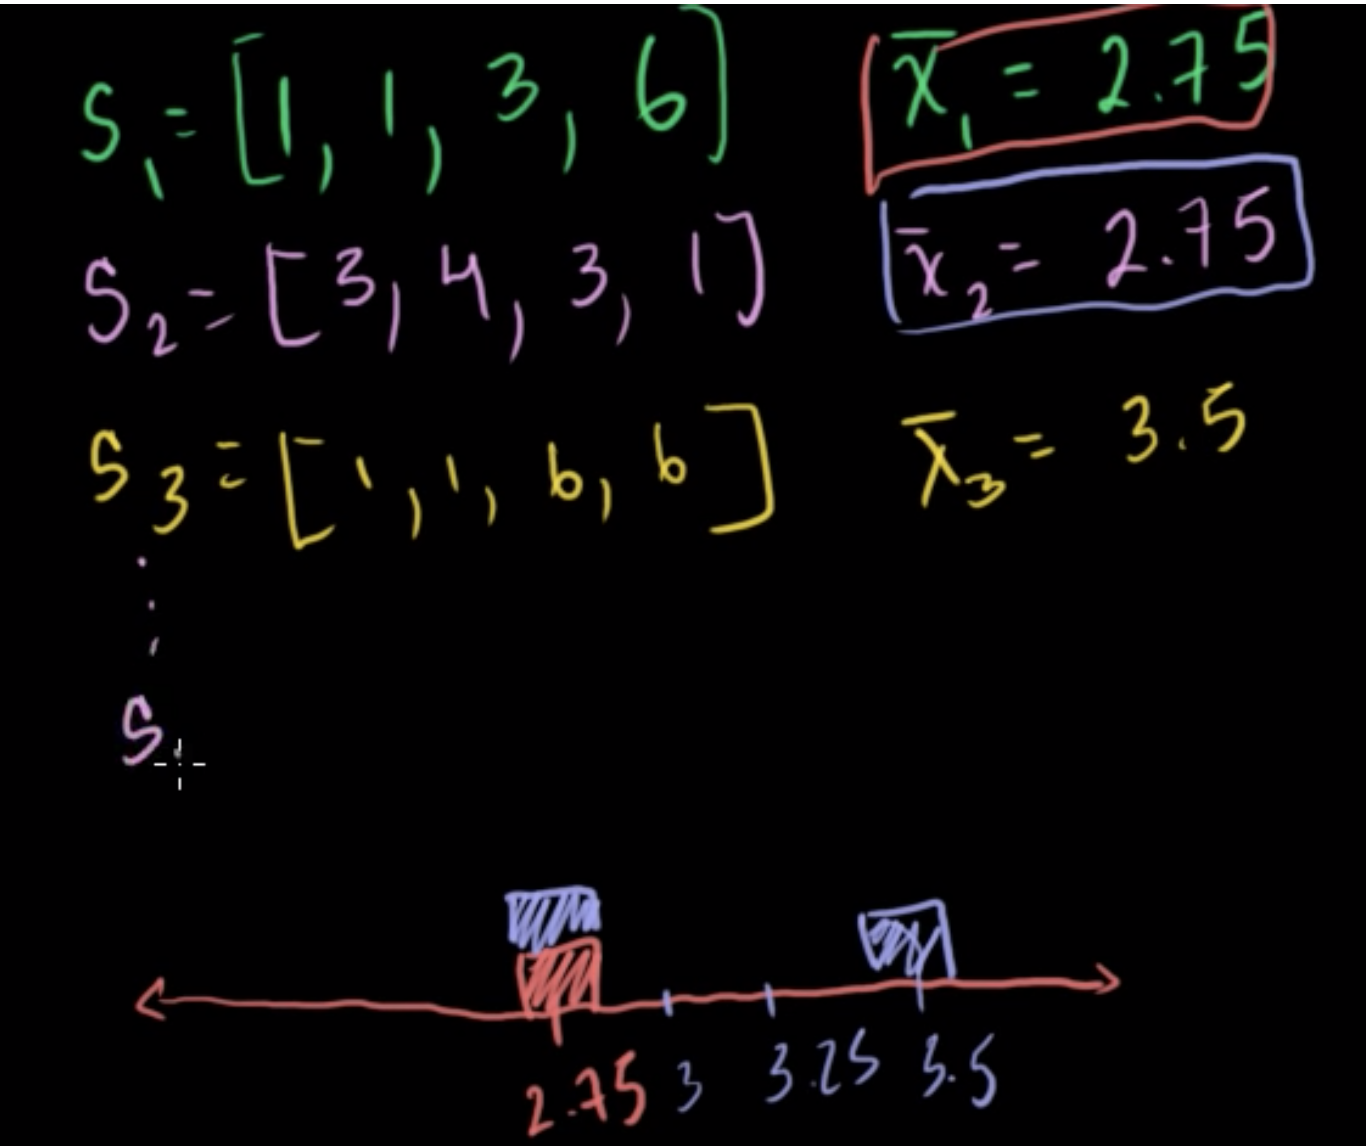 S₁ = [1, 1, 3, 6] x̄₁ = 2.75
S₂ = [3, 4, 3, 1] x̄₂ = 2.75
S₃ = [1, 1, 6, 6] x̄₃ = 3.5
S
2.75 3 3.25 3.5